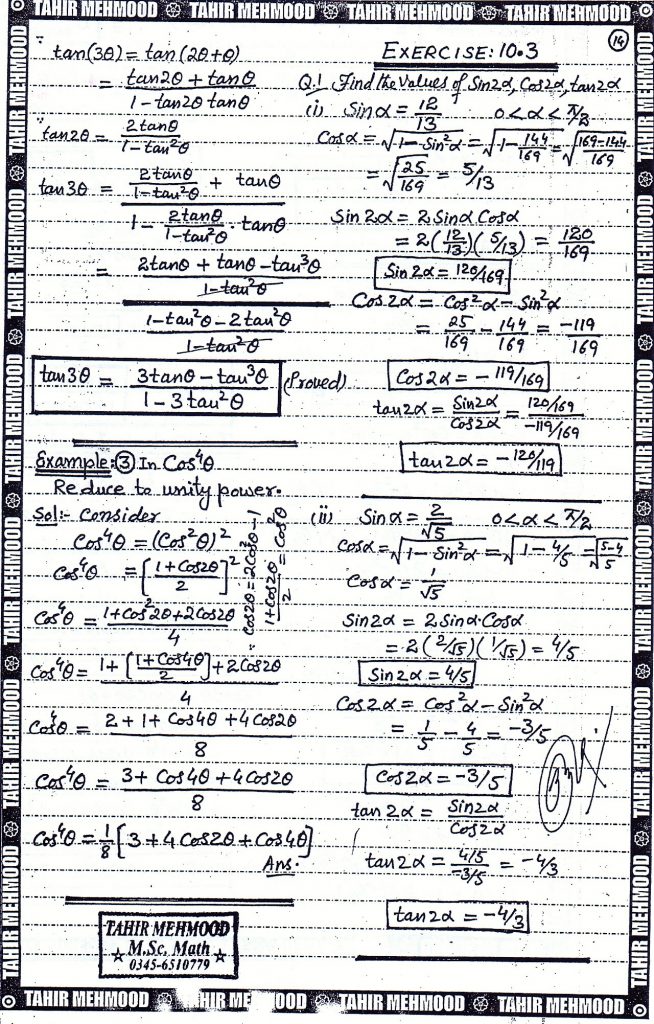 TAHIR MEHMOOD TAHIR MEHMOOD TAHIR MEHMOOD TAHIR MEHMOOD
14
tan(3θ) = tan(2θ+θ)
= (tan2θ + tanθ)/(1 - tan2θ tanθ)
∵ tan2θ = 2tanθ/(1-tan²θ)
tan3θ = (2tanθ/(1-tan²θ) + tanθ)/(1 - 2tanθ/(1-tan²θ) · tanθ)
= ((2tanθ + tanθ - tan³θ)/(1-tan²θ))/((1-tan²θ - 2tan²θ)/(1-tan²θ))
tan3θ = (3tanθ - tan³θ)/(1 - 3tan²θ) (Proved)
Example:③ In Cos⁴θ
Reduce to unity power.
Sol:- Consider
Cos⁴θ = (Cos²θ)²
Cos⁴θ = [(1+Cos2θ)/2]²
∵ Cos2θ = 2Cos²θ - 1
(1+Cos2θ)/2 = Cos²θ
Cos⁴θ = (1+Cos²2θ+2Cos2θ)/4
Cos⁴θ = (1+[(1+Cos4θ)/2]+2Cos2θ)/4
Cos⁴θ = (2+1+Cos4θ+4Cos2θ)/8
Cos⁴θ = (3+Cos4θ+4Cos2θ)/8
Cos⁴θ = 1/8[3+4Cos2θ+Cos4θ]
Ans.
TAHIR MEHMOOD
M.Sc. Math
0345-6510779
EXERCISE: 10.3
Q.1 Find the values of Sin2α, Cos2α, tan2α
(i) Sinα = 12/13 0<α<π/2
Cosα = √(1-Sin²α) = √(1-144/169) = √((169-144)/169)
= √(25/169) = 5/13
Sin2α = 2Sinα Cosα
= 2(12/13)(5/13) = 120/169
Sin2α = 120/169
Cos2α = Cos²α - Sin²α
= 25/169 - 144/169 = -119/169
Cos2α = -119/169
tan2α = Sin2α/Cos2α = (120/169)/(-119/169)
tan2α = -120/119
(ii) Sinα = 2/√5 0<α<π/2
Cosα = √(1-Sin²α) = √(1-4/5) = √((5-4)/5)
Cosα = 1/√5
Sin2α = 2Sinα·Cosα
= 2(2/√5)(1/√5) = 4/5
Sin2α = 4/5
Cos2α = Cos²α - Sin²α
= 1/5 - 4/5 = -3/5
Cos2α = -3/5
tan2α = Sin2α/Cos2α
tan2α = (4/5)/(-3/5) = -4/3
tan2α = -4/3
TAHIR MEHMOOD TAHIR MEHMOOD TAHIR MEHMOOD TAHIR MEHMOOD